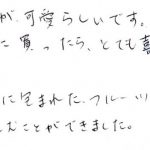 が、可愛らしいです。
に買ったら、とても喜
に包まれた、フルーツ
むことができました。